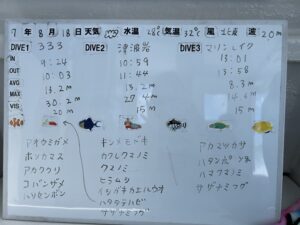 7年8月18日 天気 水温28° 気温32° 風 北東 波
DIVE1 333 DIVE2 津波岩 DIVE3 マリンレイク
IN 9:24 10:59 13:01
OUT 10:03 11:44 13:58
AVG 13.2m 8.3m
MAX 20.2m 27.4m
VIS 20m 15m 15m
アオウミガメ キンメモドキ アカマツカサ
ホソカマス カクレクマノミ ハタンポ
アカククリ クマノミ ハマクマノミ
コバンザメ ヒラムシ サザナミフグ
ハリセンボン イシガキカエルウオ
ハタタテハゼ
サザナミフグ